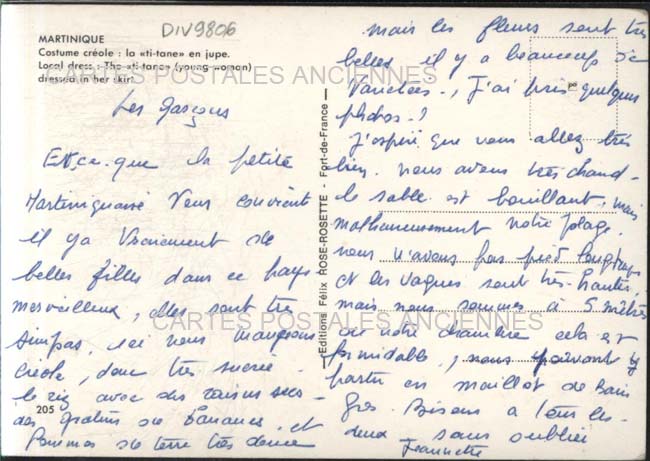 DIV9806
MARTINIQUE
Costume créole : la «ti-tane» en jupe.
Local dress : The «ti-tane» (young woman)
dressed in her skirt.
CARTES POSTALES ANCIENNES
Les garçons
Est-ce-que la petite
Martiniquaise vous convient
il y a vraiment de
belles filles dans ce pays
merveilleux, elles sont très
simpas, ici nous mangeons
créole, donc très sucré
le riz avec des raisins secs
des gratins de bananes, et
Pommes de terre très douce
205
CARTES POSTALES ANCIENNES
Editions Félix ROSE-ROSETTE - Fort-de-France
mais les fleurs sont très
belles il y a beaucoup de
J'ai pris quelques
photos.
J'espère que vous allez très
bien. nous avons très chaud
le sable est bouillant, mais
malheureusement notre plage
nous n'avons pas pied longtemps
et les vagues sont très hautes,
mais nous sommes à 5 mètres
de notre chambre cela est
formidable, nous pouvant y
partir en maillot de Bain
Gros Bisous à tous les
deux sans oublier
Jeannette